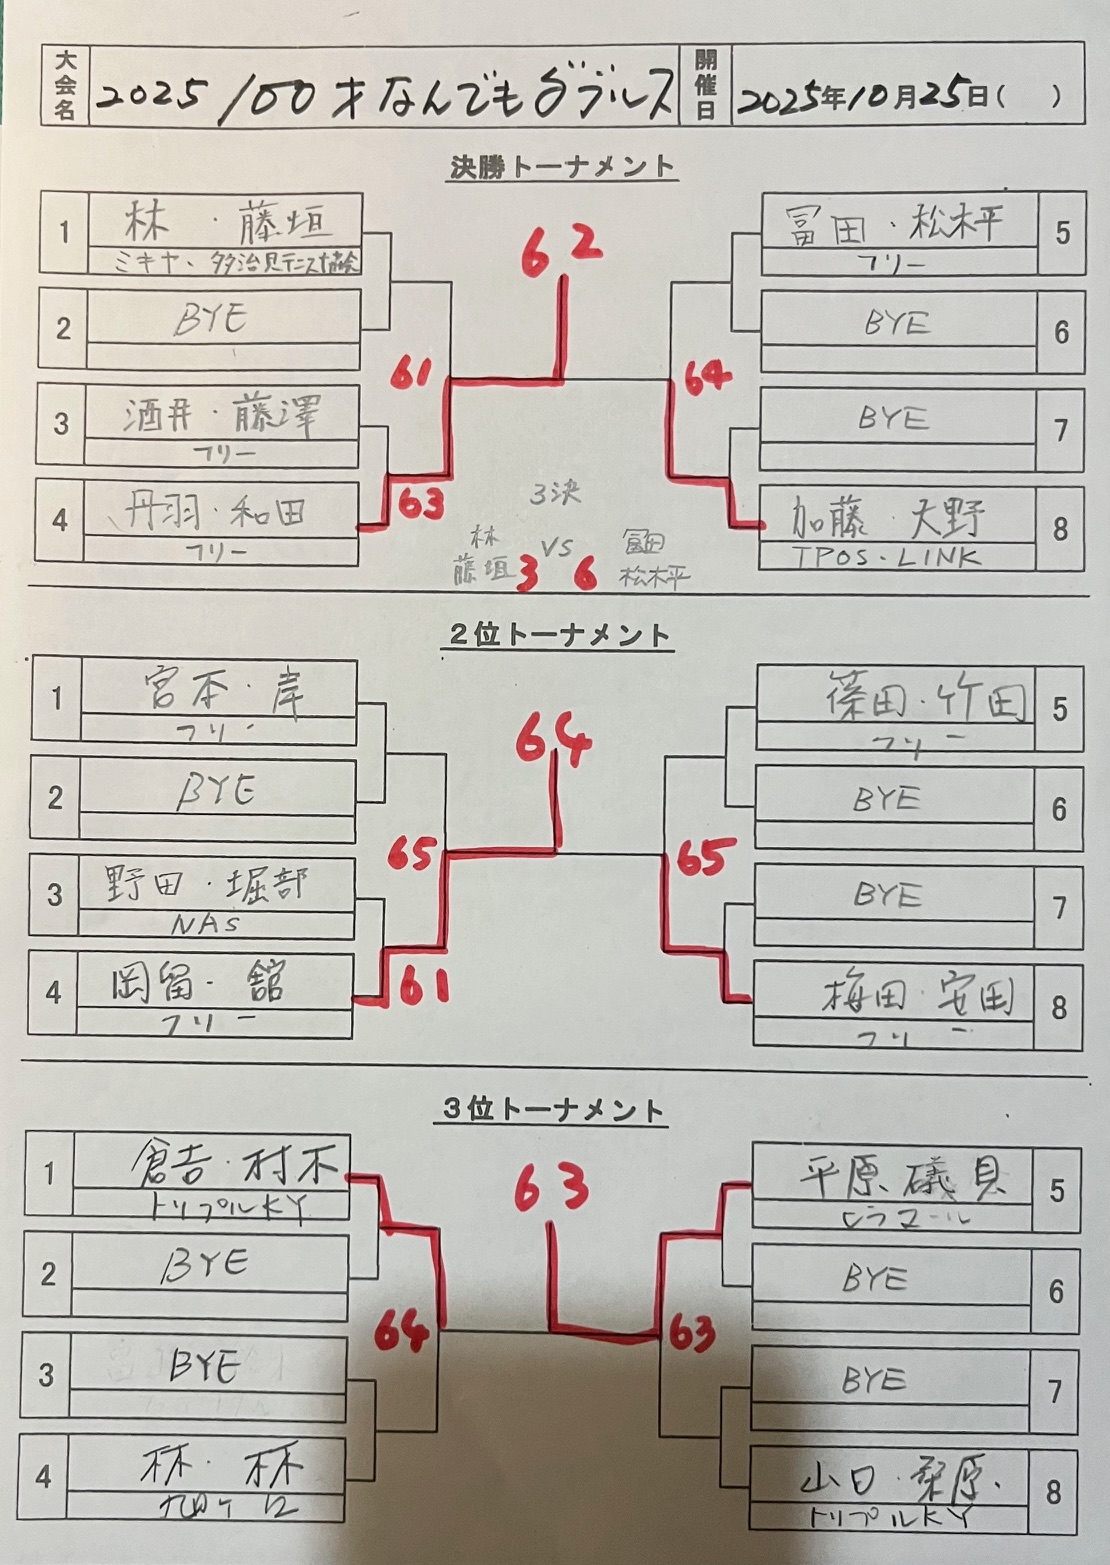 大会名
2025 100才なんでもダブルス
開催日
2025年10月25日( )
決勝トーナメント
1
林 ・ 藤垣
ミキヤ、多治見テニス協会
2
BYE
3
酒井・藤澤
フリー
4
丹羽・和田
フリー
62
61
63
64
5
冨田・松木平
フリー
6
BYE
7
BYE
8
加藤 大野
TPOS・LINK
3決
林
藤垣
3
VS
6
冨田
松木平
2位トーナメント
1
宮本・岸
フリー
2
BYE
3
野田・堀部
NAS
4
岡留・舘
フリー
64
65
61
65
5
篠田・竹田
フリー
6
BYE
7
BYE
8
梅田・安田
フリー
3位トーナメント
1
倉吉・村木
トリプルKY
2
BYE
3
BYE
4
林・林
63
64
63
5
平原 礒貝
6
BYE
7
BYE
8
山口・栞原・
トリプルKY